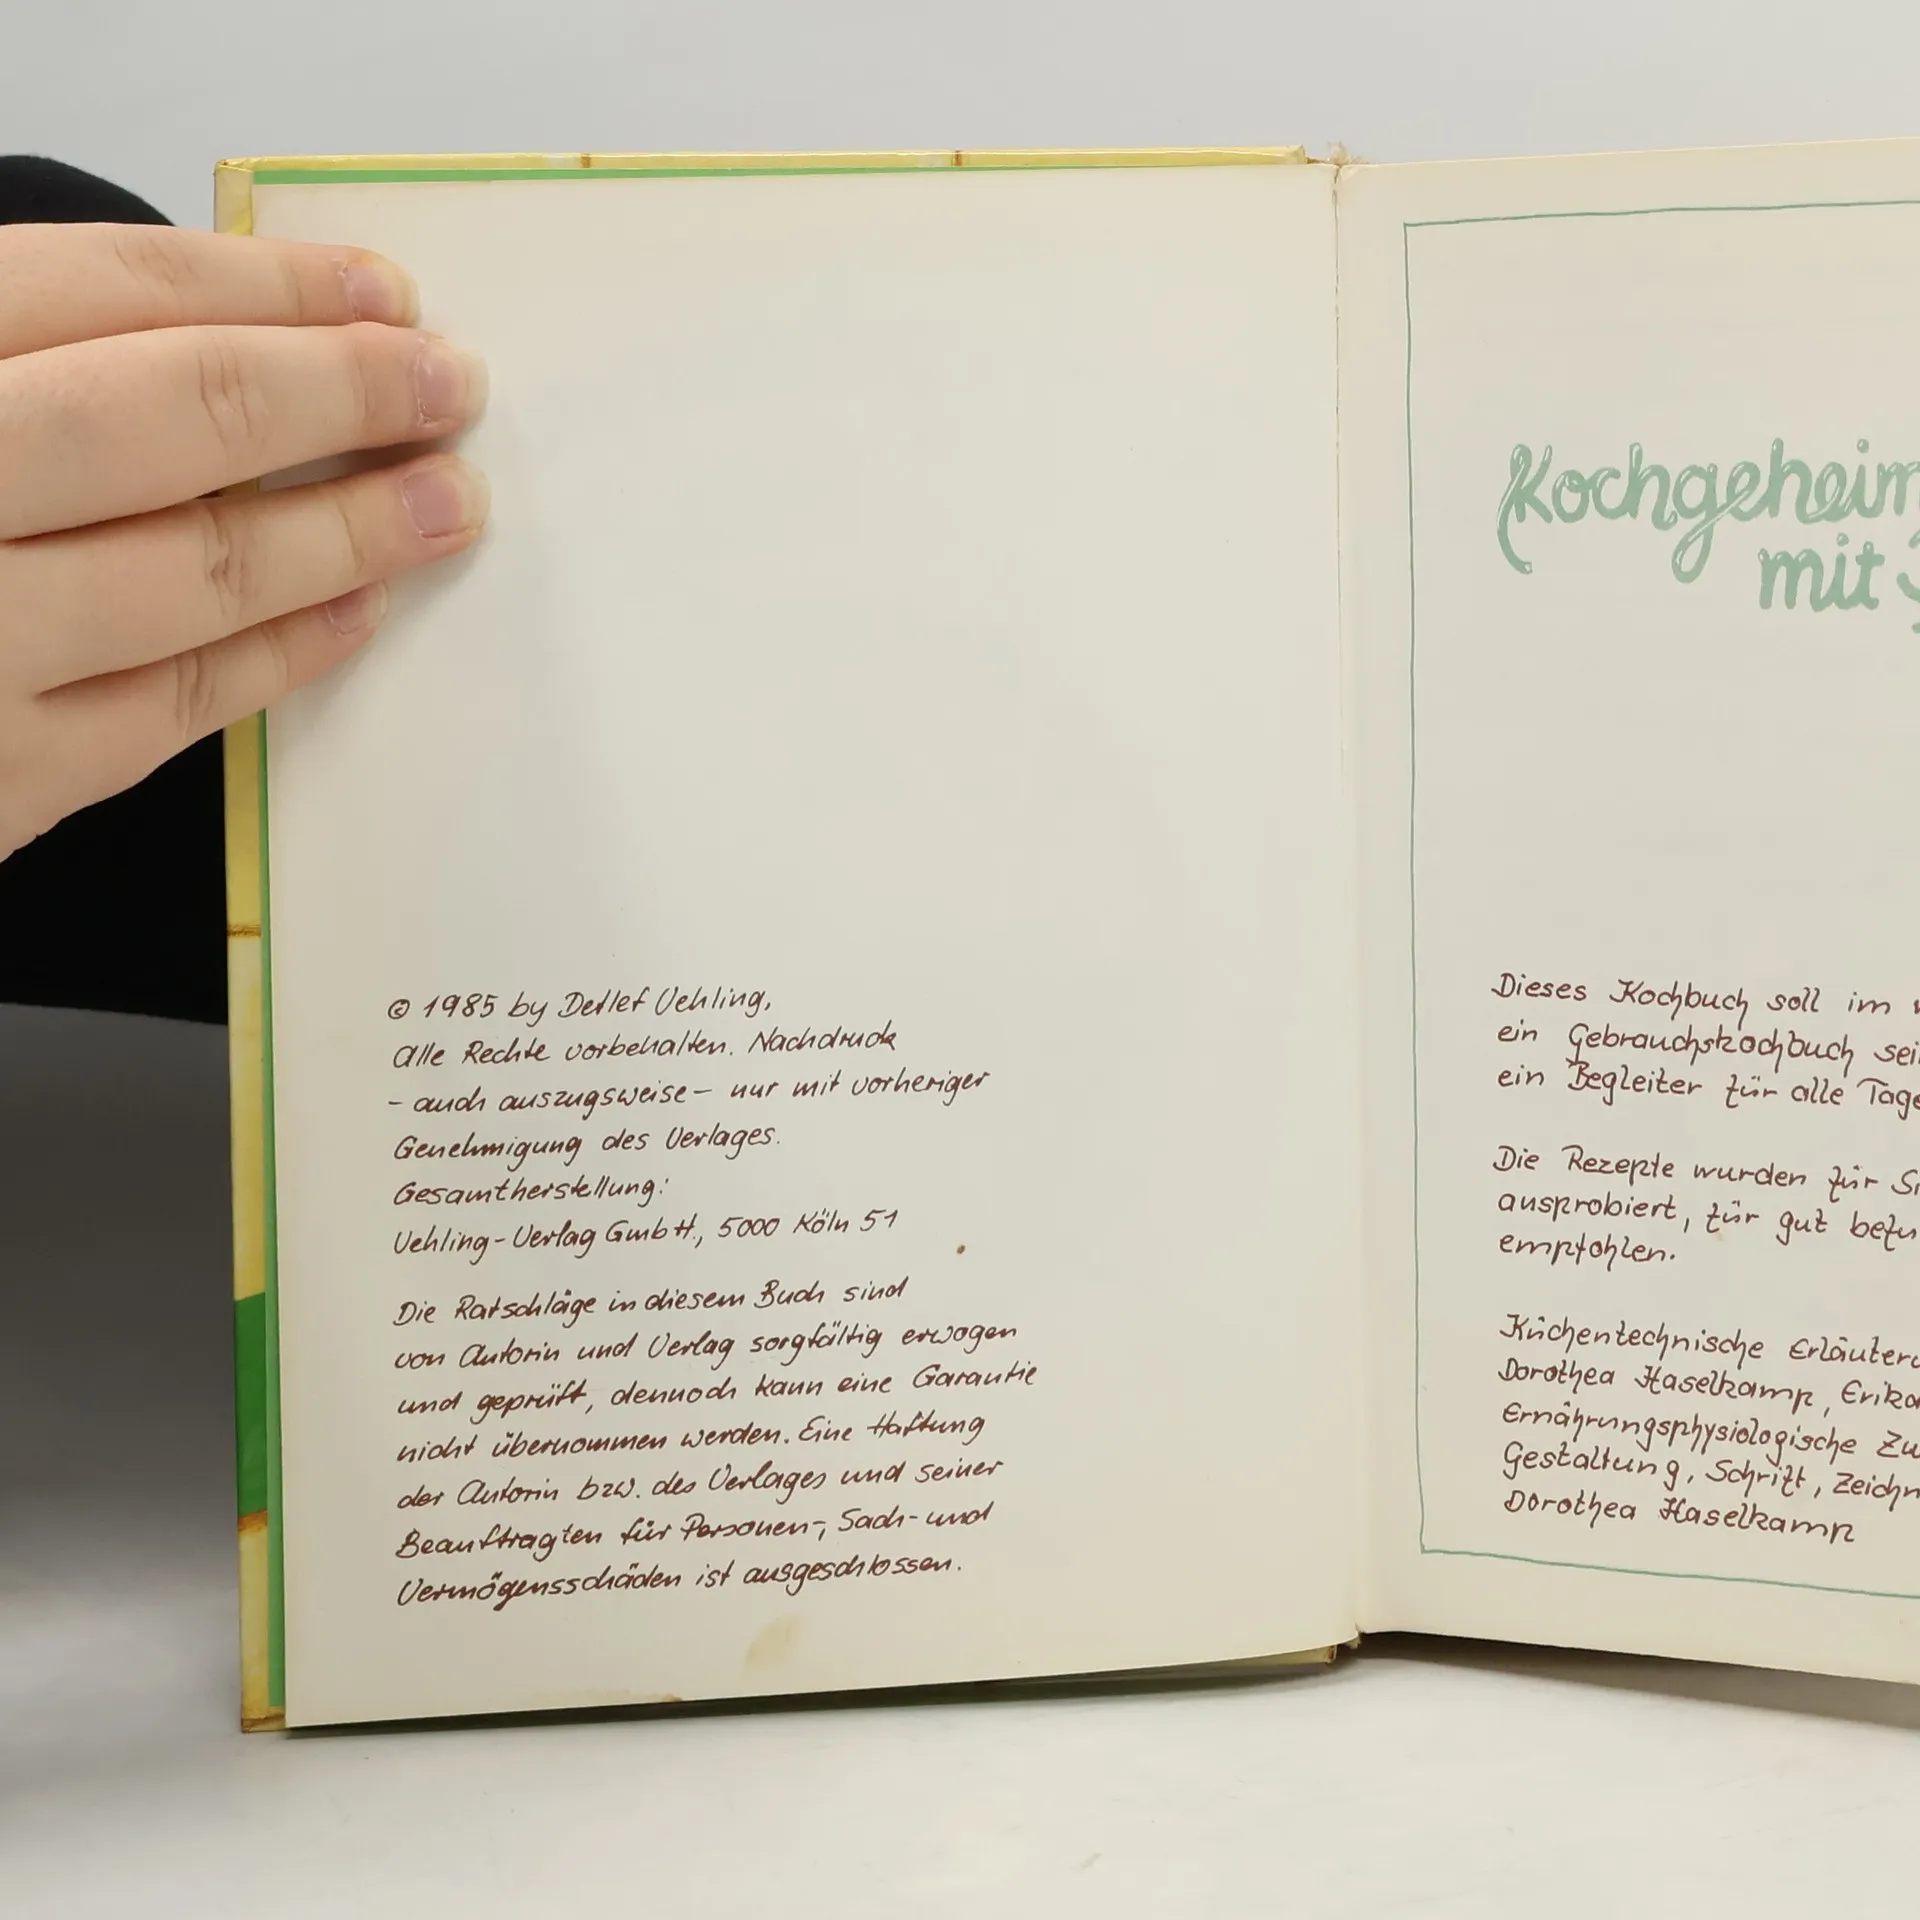 © 1985 by Detlef Uehling,
Alle Rechte vorbehalten. Nachdruck
- auch auszugsweise - nur mit vorheriger
Genehmigung des Verlages.
Gesamtherstellung:
Uehling-Verlag GmbH, 5000 Köln 51
Die Ratschläge in diesem Buch sind
von Autorin und Verlag sorgfältig erwogen
und geprüft, dennoch kann eine Garantie
nicht übernommen werden. Eine Haftung
der Autorin bzw. des Verlages und seiner
Beauftragten für Personen-, Sach- und
Vermögensschäden ist ausgeschlossen.
Kochgeheim
mit
Dieses Kochbuch soll im
ein Gebrauchskochbuch sei
ein Begleiter für alle Tage
Die Rezepte wurden für
ausprobiert, für gut befu
empfohlen.
Küchentechnische Erläuteru
Dorothea Haselkamp, Erika
Ernährungsphysiologische Zu
Gestaltung, Schrift, Zeichn
Dorothea Haselkamp